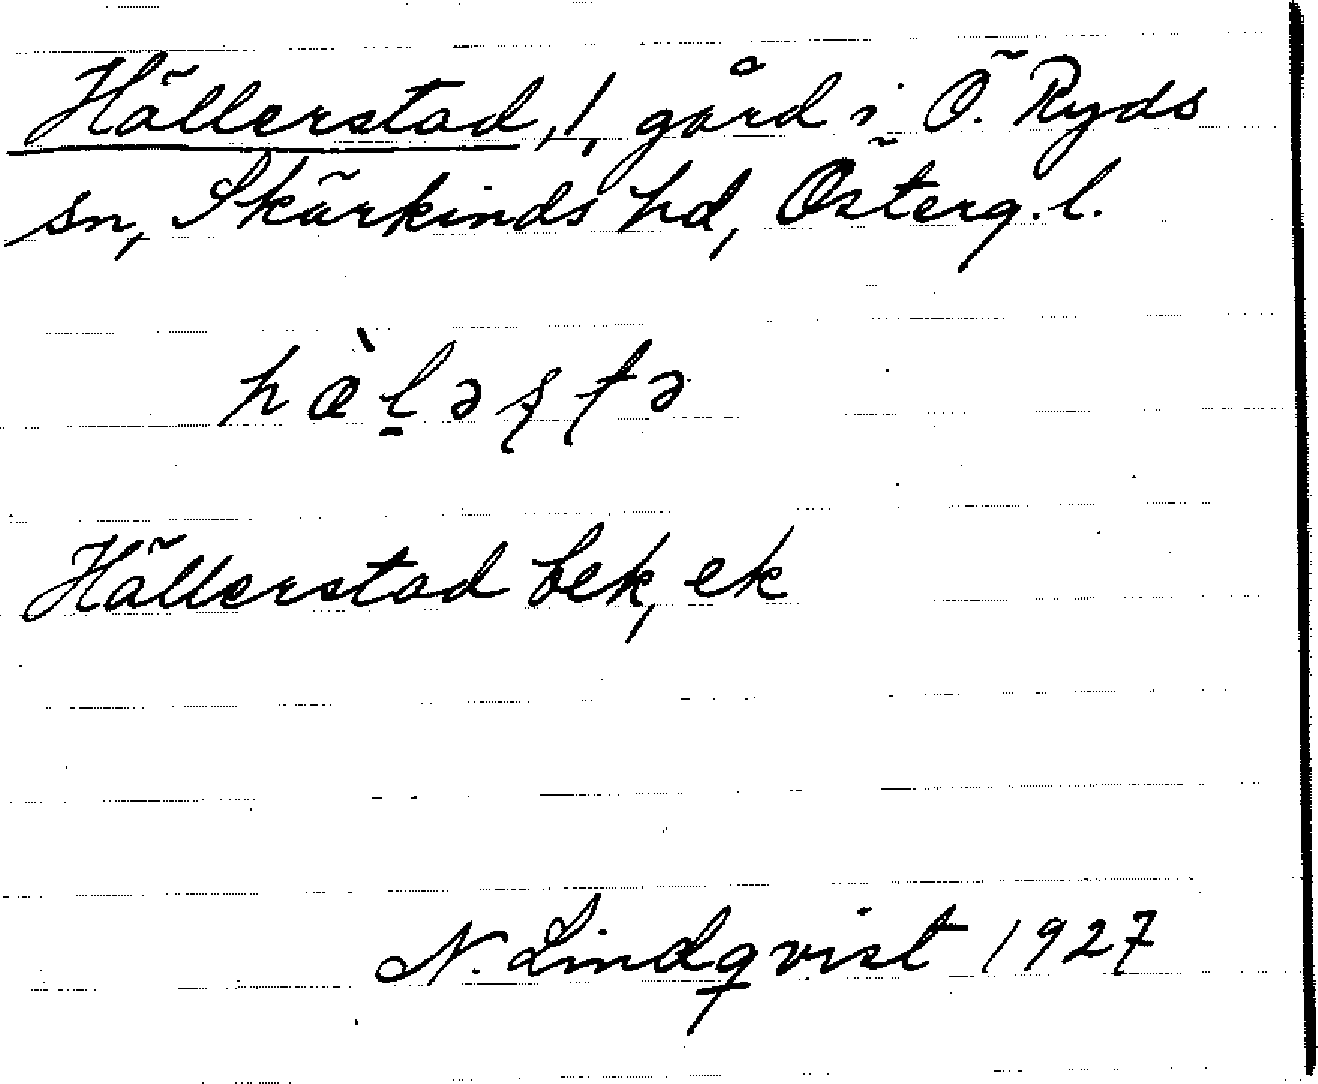 Hällerstad, 1, gård i Ö. Ryds
sn, Skärkinds hd, Österg. l.
hæ̀l̠əʂʈə
Hällerstad bek, ek
N. Lindqvist 1927